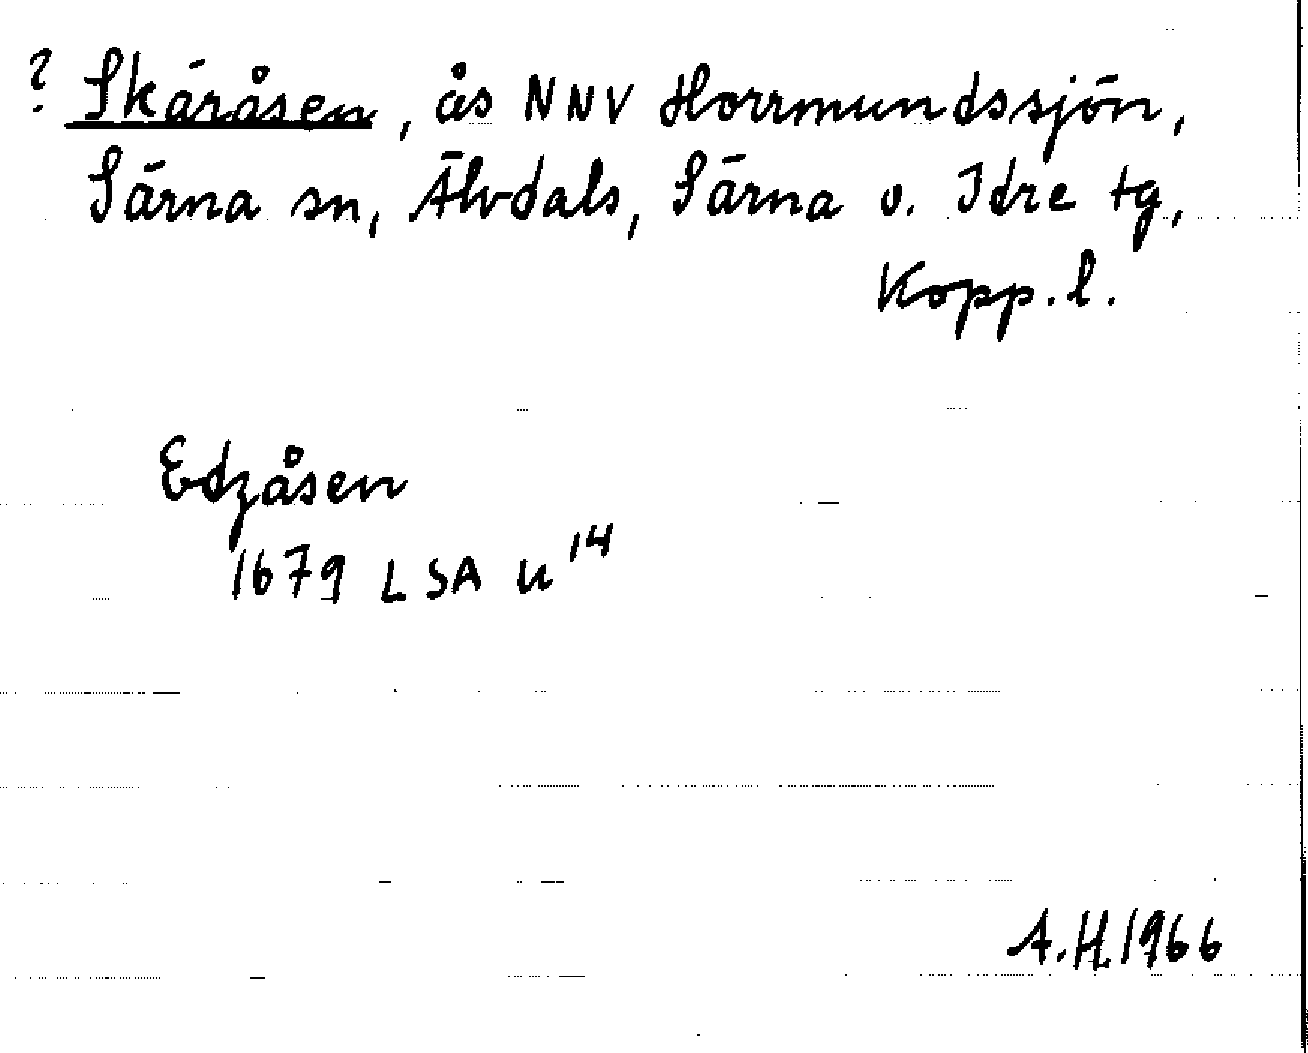 ? Skäråsen, ås NNV Horrmundssjön,
Särna sn, Älvdals, Särna o. Idre tg,
Kopp. l.
Edzåsen
1679 LSA U 14
A.H. 1966